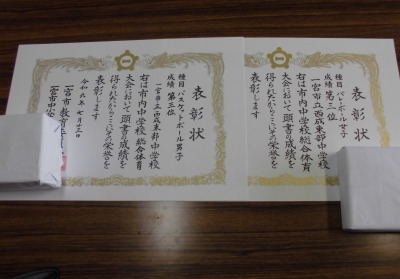 表彰状
種目 バレーボール女子
成績 第三位
一宮市立西成東部中学校
右は市内中学校総合体育
大会において頭書の成績を
得られたのでここにその栄誉を
表彰します
表彰状
種目 バスケットボール男子
成績 第三位
一宮市立西成東部中学校
右は市内中学校総合体育
大会において頭書の成績を
得られたのでここにその栄誉を
表彰します
令和六年七月十三日
一宮市教育
一宮市中